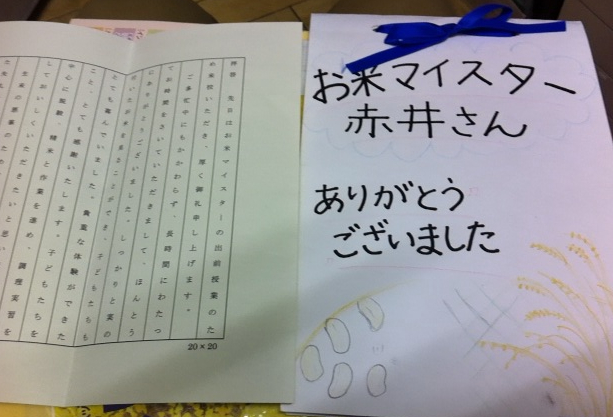 拝啓 先日はお米マイスターの出前授業のた
め来校いただき、厚く御礼申し上げます。
ご多忙中にもかかわらず、長時間にわたっ
てお時間をさいていただきまして、ほんとう
にありがとうございました。しっかりと実の
とても喜んでいました。貴重な体験ができた
こと、とても感謝いたします。子どもたちを
中心に脱穀、精米と作業を進め、調理実習を
しておいしくいただきたいと思い
20×20
お米マイスター
赤井さん
ありがとう
ございました